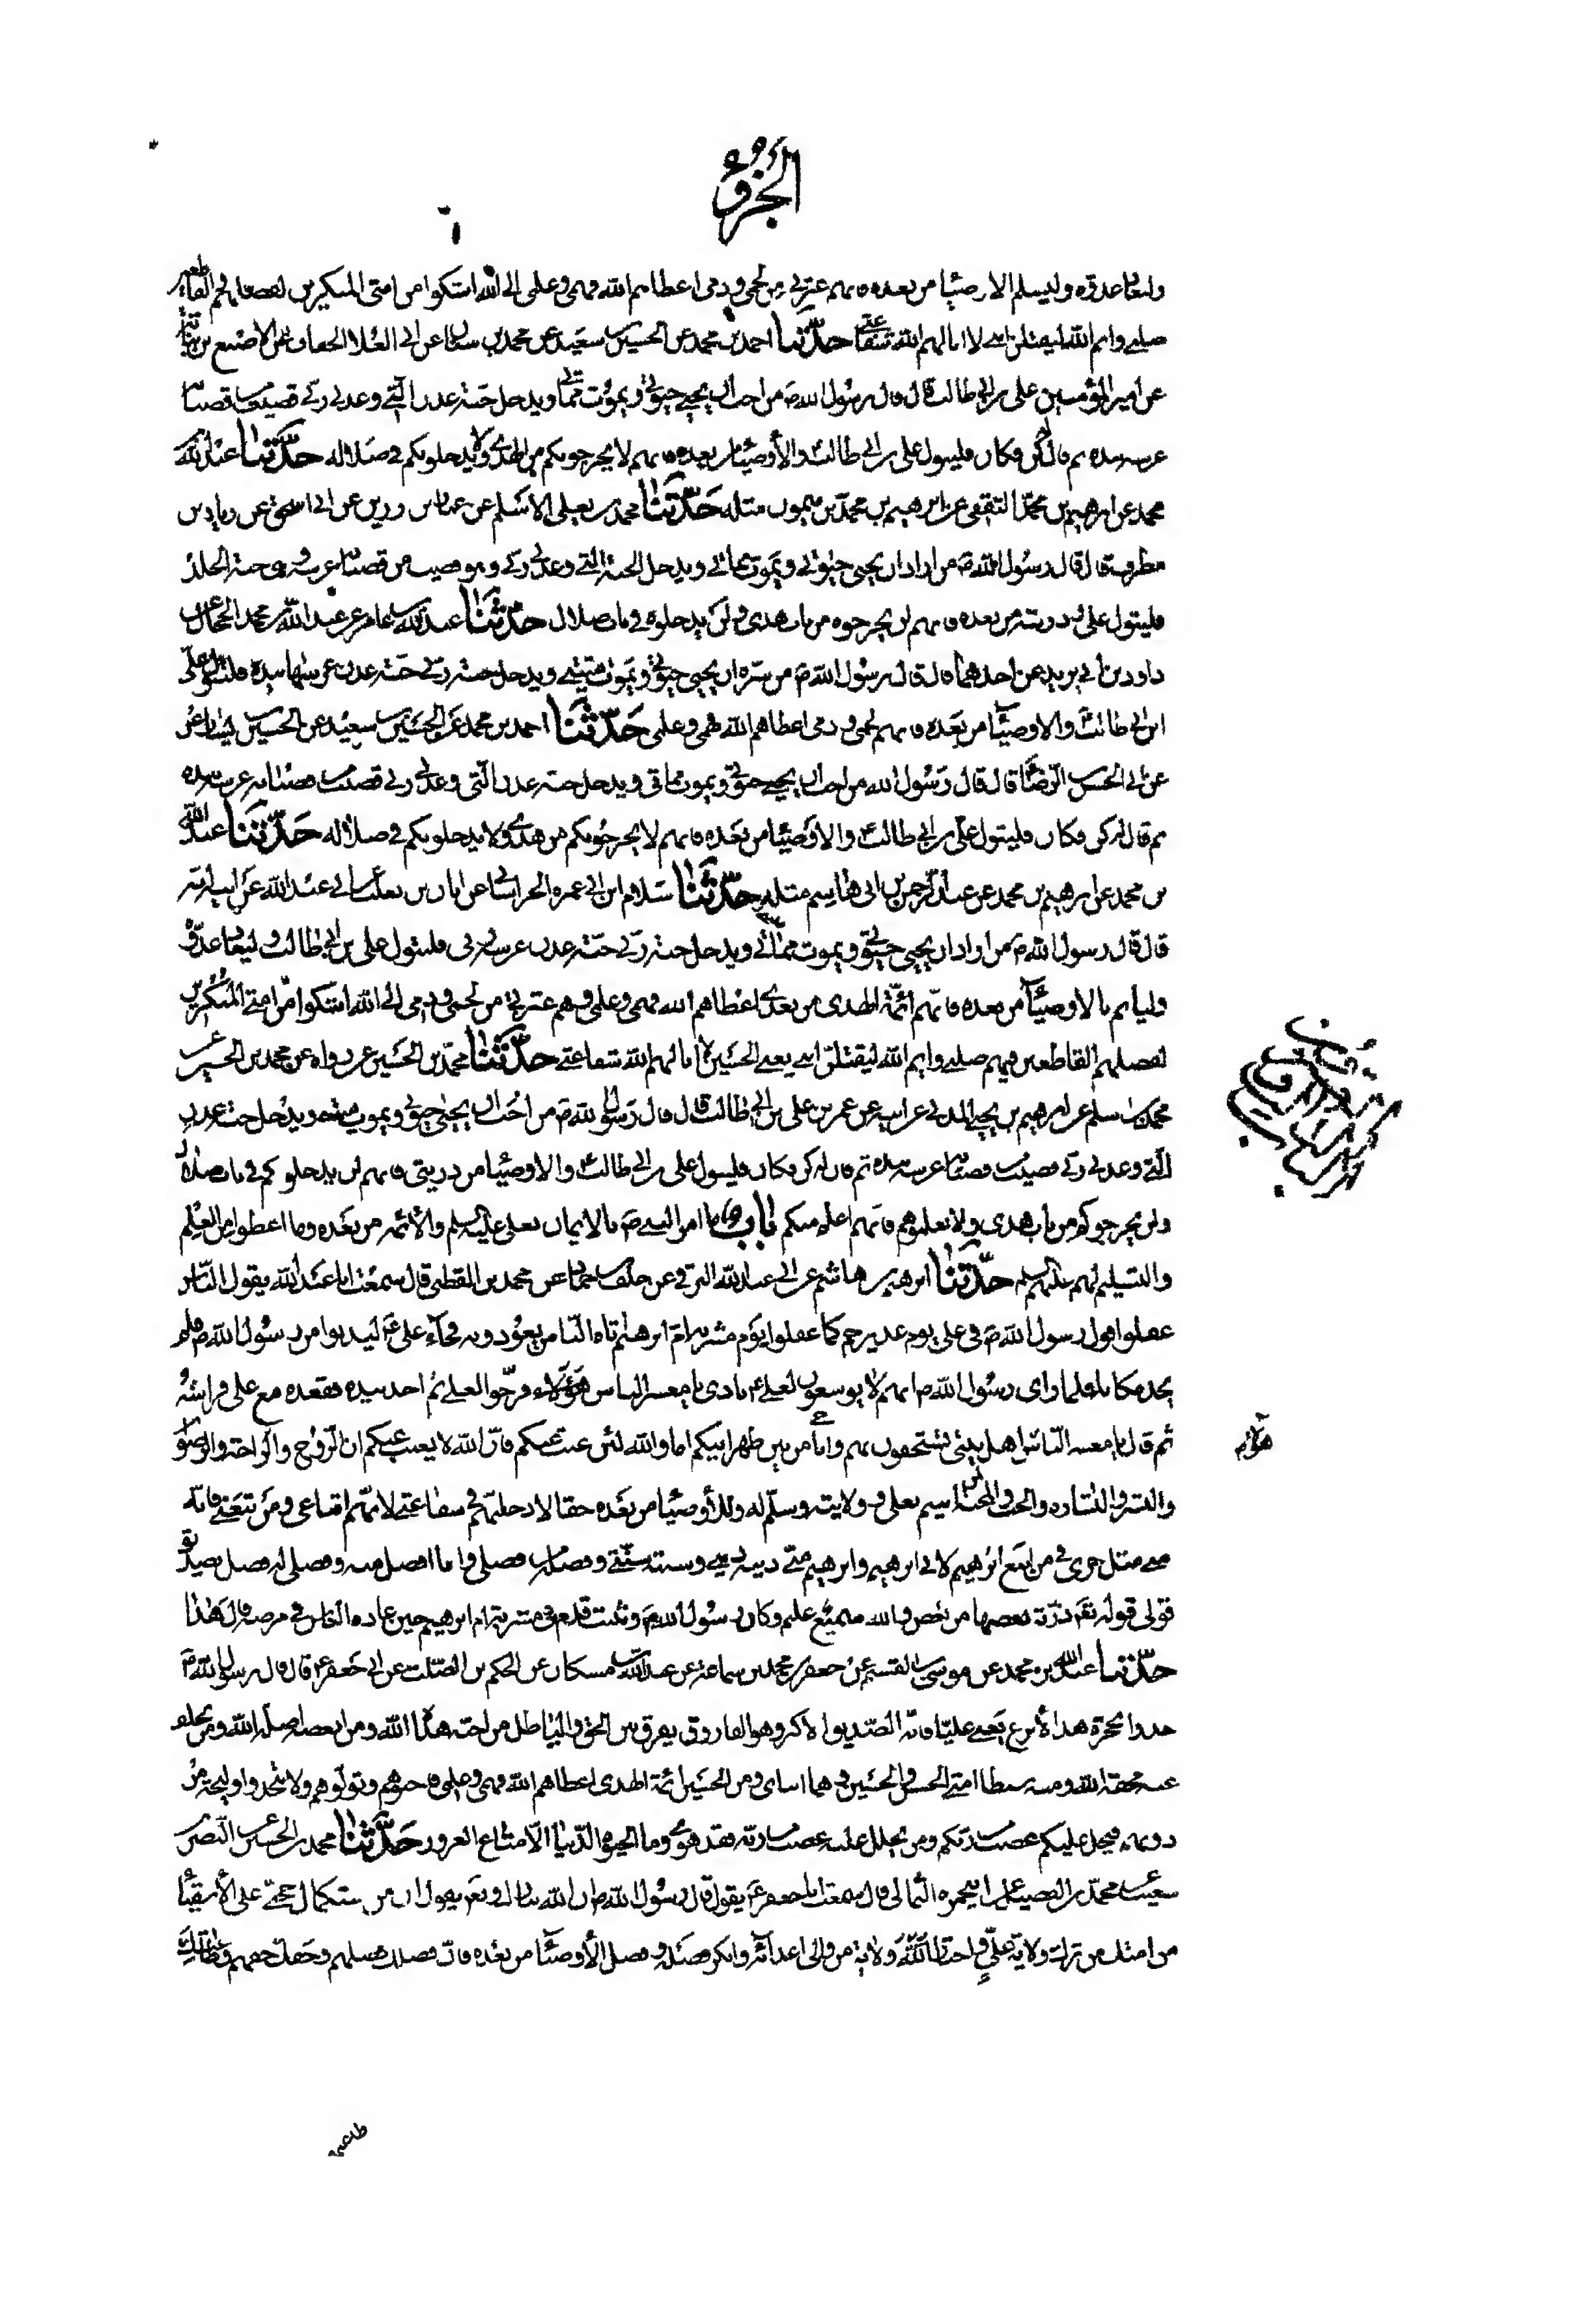 الجزؤ
وليعاد عدوه وليسلم الاوصيا من بعده فانهم عترتي من لحمي ودمي اعطاهم الله فهمي وعلمي الى الله اشكوا من امتي المنكرين لفضلهم القاطعين
صلتي وايم الله ليقتلن ابني لا انالهم الله شفاعتي حدثنا احمد بن محمد عن الحسين بن سعيد عن محمد بن سنان عن ابي العلا الخفاف عن الاصبغ بن نباته
عن امير المؤمنين علي بن ابي طالب قال قال رسول الله ص من احب ان يحيي حيوتي ويموت مماتي ويدخل جنة عدن التي وعدني ربي قضيب من قضبانه
غرسه بيده ثم قال له كن فكان فليتول علي بن ابي طالب والأوصيا من بعده فانهم لا يخرجونكم من الهدى ولا يدخلونكم في ضلالة حدثنا عبد الله بن
محمد عن ابرهيم بن محمد الثقفي عن ابرهيم بن محمد بن ميمون مثله حدثنا محمد بن يعلى الاسلم عن عمار بن رزين عن ابي اسحق عن زياد بن
مطرف قال قال رسول الله ص من اراد ان يحيي حيوتي ويموت مماتي ويدخل الجنة التي وعدني ربي وهو قضيب من قضبانه غرسه وهي جنة الخلد
فليتول علي وذريته من بعده فانهم لن يخرجوه من باب هدى ولن يدخلوه في باب ضلال حدثنا عبد الله بن عامر عن عبد الله بن محمد الحجال عن
داود بن ابي يزيد عن احدهما قال قال رسول الله ص من سره ان يحيي حيوتي ويموت ميتتي ويدخل جنة ربي جنة عدن غرسها بيده فليتول علي
ابن ابي طالب والاوصيا من بعده فانهم لحمي ودمي اعطاهم الله فهمي وعلمي حدثنا احمد بن محمد عن الحسين بن سعيد عن الحسين بن يسار عن
عن ابي الحسن الرضا قال قال رسول الله من احب ان يحيي حيوتي ويموت مماتي ويدخل جنة عدن التي وعدني ربي قضيب من قضبانه غرسه بيده
ثم قال له كن فكان فليتول علي بن ابي طالب والاوصيا من بعده فانهم لا يخرجونكم من هدى ولا يدخلونكم في ضلالة حدثنا عبد الله
بن محمد عن ابرهيم بن محمد عن عبد الرحمن بن ابي هاشم مثله حدثنا سلام ابن ابي عمره الخراساني عن ابان بن تغلب عن ابي عبد الله عن ابيه انه
قال قال رسول الله ص من اراد ان يحيي حيوتي ويموت مماتي ويدخل جنة ربي جنة عدن غرسه ربي فليتول علي بن ابي طالب وليعاد عدوه
وليأتم بالاوصيا من بعده فانهم أئمة الهدى من بعدي اعطاهم الله فهمي وعلمي وهم عترتي من لحمي ودمي الى الله اشكوا من امتي المنكرين
لفضلهم القاطعين فيهم صلتي وايم الله ليقتلن ابني يعني الحسين لا انالهم الله شفاعتي حدثنا محمد بن الحسين عمن رواه عن محمد بن الحسين عن
محمد بن اسلم عن ابرهيم بن يحيى المدني عن ابيه عن عمر بن علي بن ابي طالب قال قال رسول الله ص من احب ان يحيى حيوتي ويموت ميتتي ويدخل جنة عدن
التي وعدني ربي قضيب من قضبانه غرسه بيده ثم قال له كن فكان فليتول علي بن ابي طالب والاوصيا من ذريتي فانهم لن يدخلوكم في باب ضلالة
ولن يخرجوكم من باب هدى ولا تعلموهم فانهم اعلم منكم باب ما امر النبي ص بالايمان بعلي عليه السلم والائمه من بعده وما اعطوا من العلم
والتسليم لهم عليهم السلم حدثنا ابرهيم بن هاشم عن ابي عبد الله البرقي عن خلف بن حماد عن محمد بن القطبي قال سمعت ابا عبد الله يقول الناس
غفلوا قول رسول الله ص في علي يوم غدير خم كما غفلوا يوم مشربة ام ابرهيم اتاه الناس يعودونه فجاء علي ع ليدنوا من رسول الله ص فلم
يجد مكانا فلما راى رسول الله ص انهم لا يوسعون لعلي ع نادى يا معشر الناس فرجوا لعلي ثم اخذ بيده فقعده مع علي فراشه
ثم قال يا معشر الناس اهل بيتي تستخفون بهم وانا حي من بين ظهرانيكم اما والله لئن غبت عنكم فان الله لا يغيب عنكم ان الروح والراحة والرضوان
والبشر والبشاره والحب والمحبة لمن ائتم بعلي وولايته وسلم له وللأوصيا من بعده حقا لادخلنهم في شفاعتي لانهم اتباعي ومن تبعني فانه
مني مثل جرى في من اتبع ابرهيم لاني ابرهيم وابرهيم مني دينه ديني وسنته سنتي وفضله فضلي وانا افضل منه وفضلي له فضل تصديق
قولي قوله تع ذرية بعضها من بعض والله سميع عليم وكان رسول الله ص وثبت قدمه في مشربة ام ابرهيم حين عاده الناس في مرضه قال هذا
حدثنا عبد الله بن محمد عن موسى بن القسم عن جعفر بن محمد بن سماعه عن عبد الله بن مسكان عن الحكم بن الصلت عن ابي جعفر ع قال قال رسول الله ص
خذوا بحجزة هذا الأنزع يعني عليا فانه الصديق الاكبر وهو الفاروق يفرق بين الحق والباطل من احبه هداه الله ومن ابغضه اضله الله ومن تخلف
عنه محقه الله ومنه سبطا امتي الحسن والحسين وهما ابناي ومن الحسين ائمة الهدى اعطاهم الله فهمي وعلمي فاحبوهم وتولوهم ولا تتخذوا وليجة من
دونهم فيحل عليكم غضب من ربكم ومن يحلل عليه غضب من ربه فقد هوى وما الحيوة الدنيا الا متاع الغرور حدثنا محمد بن الحسين عن النضر بن
شعيب عن محمد بن الفضيل عن ابي حمزه الثمالي قال سمعت ابا جعفر ع يقول قال رسول الله ص ان الله تبارك وتع يقول ان من استكمال حجتي على الأشقيا
من امتك من ترك ولاية علي واختار ولاية من والى اعدائه وانكر فضله وفضل الأوصيا من بعده فان فضلك فضلهم وحقك حقهم وطاعتك
هؤلاء
طاعتهم